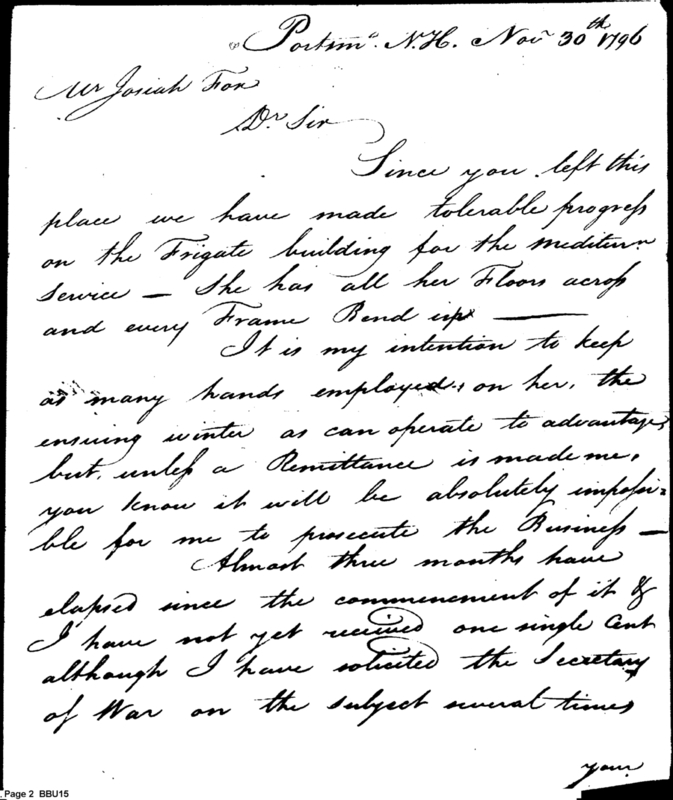 Portsmo. N.H. Nov 30th 1796
Mr Josiah Fox
Dr Sir
Since you left this
place we have made tolerable progress
on the Frigate building for the mediterrn
Service — She has all her Floors across
and every Frame Bend up —
It is my intention to keep
as many hands employed, on her, the
ensuing winter as can operate to advantage,
but, unless a Remittance is made me,
you know it will be absolutely impossi=
ble for me to prosecute the Business —
Almost three months have
elapsed since the commencement of it &
I have not yet received one single Cent
although I have solicited the Secretary
of War on the subject several times
your
Page 2 BBU15